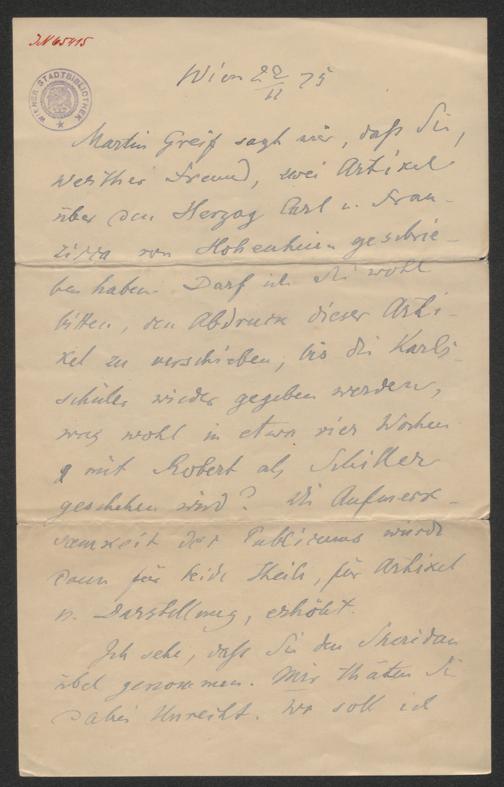 JN 65415
WIENER STADTBIBLIOTHEK
Wien 22/11 75
Martin Greif sagt mir, daß Sie,
werther Freund, zwei Artikel
über den Herzog Carl u. Fran-
ziska von Hohenheim geschrie-
ben haben. Darf ich Sie wohl
bitten, den Abdruck dieser Arti-
kel zu verschieben, bis die Karls-
schüler wieder gegeben werden,
was wohl in etwa vier Wochen
mit Robert als Schiller
geschehen wird? Die Aufmerk-
samkeit des Publicums würde
dann für beide Theile, für Artikel
u. Darstellung, erhöht.
Ich sehe, daß Sie den Sheridan
übel genommen. Mir thäten Sie
dabei Unrecht. Wo soll ich